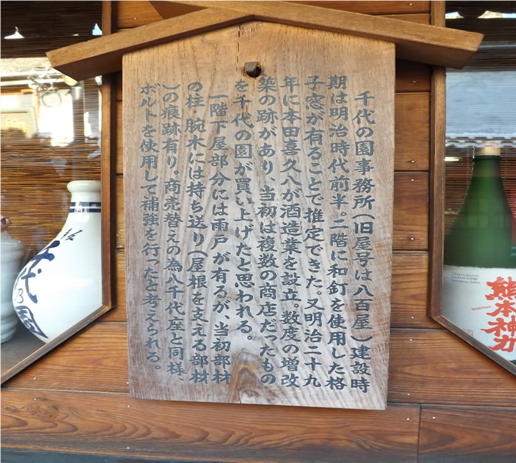 千代の園事務所(旧屋号は八百屋)建設時
期は明治時代前半。二階に和釘を使用した格
子窓が有ることで推定できた。又明治二十九
年に本田喜久八が酒造業を設立。数度の増改
築の跡があり、当初は複数の商店だったもの
を千代の園が買い上げたと思われる。
一階下屋部分には雨戸が有るが、当初部材
の柱・腕木には持ち送り(屋根を支える部材
)の痕跡有り。商売替えの為八千代座と同様、
ボルトを使用して補強を行ったと考えられる。
熊本神力